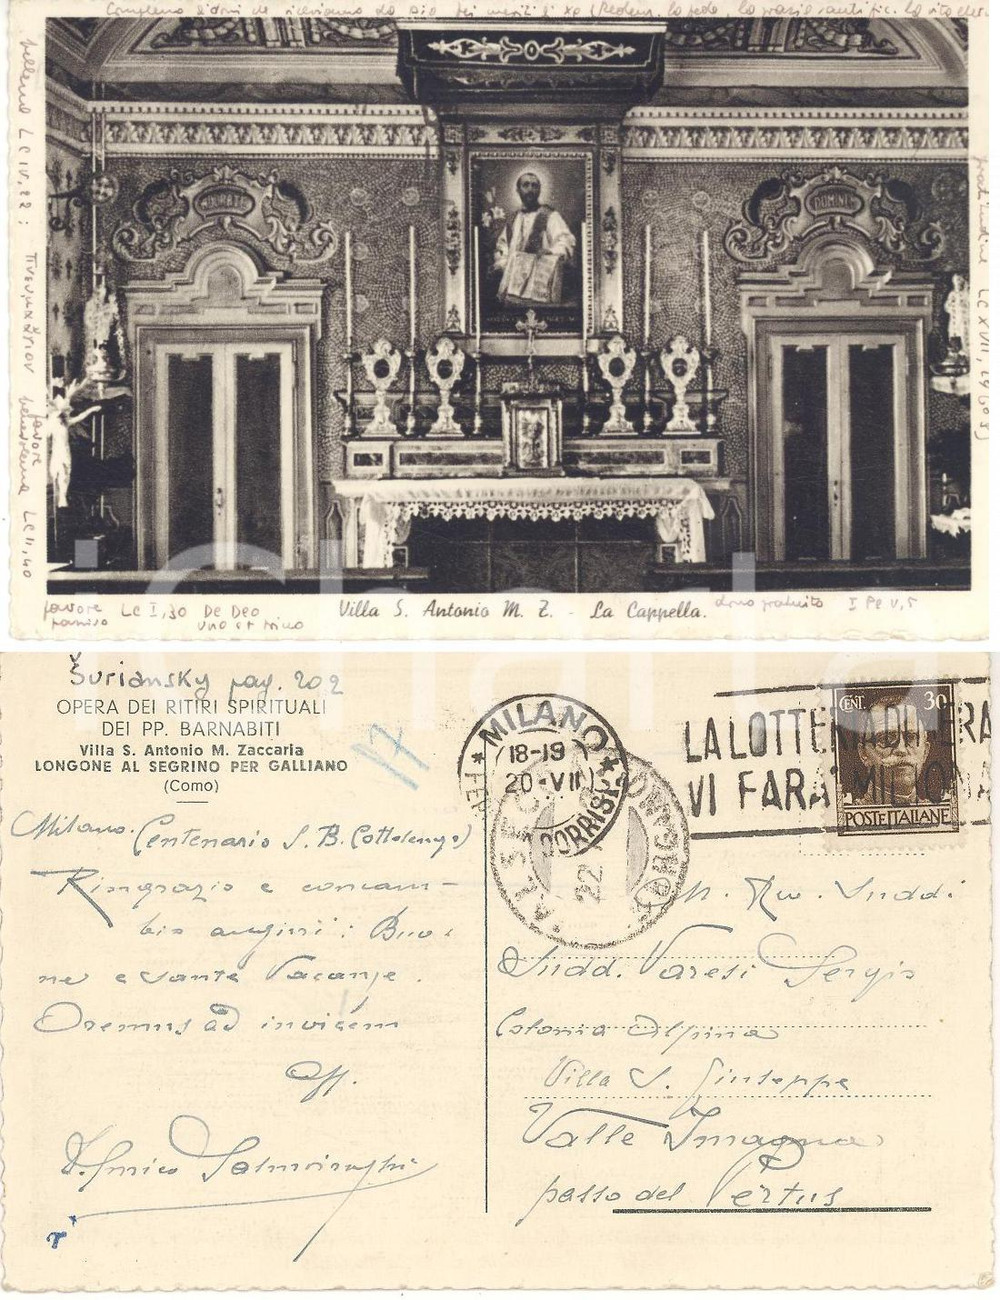 Complesso doni che riceviamo da Dio pei meriti di Xp (Reden. la fede la grazia santific. la vita eter.
Lc IV, 22 :
favore
benevolenza Lc II, 40
gratitudine Lc XVII, 9
ADORATE
DOMINUM
favore Lc I, 30 De Deo
Villa S. Antonio M. Z. - La Cappella.
dono gratuito I Pe V, 5
Šuriansky pag. 202
OPERA DEI RITIRI SPIRITUALI
DEI PP. BARNABITI
Villa S. Antonio M. Zaccaria
LONGONE AL SEGRINO PER GALLIANO
(Como)
17
MILANO
18-19
20-VII
FERR
CORRISP
22
LA LOTTERIA DI MERA
VI FARÀ MILIONA
CENT. 30
POSTE ITALIANE
Milano. (Centenario S. B. Cottolengo)
Ringrazio e contraccam-
bio auguri: Buo-
ne e sante Vacanze.
Oremus ad invicem
Aff.
D. Enrico Salmoiraghi
M. Rev. Sudd.
Sudd. Varesi Sergio
Colonia Alpina
Villa S. Giuseppe
Valle Imagna
passo del Pertus